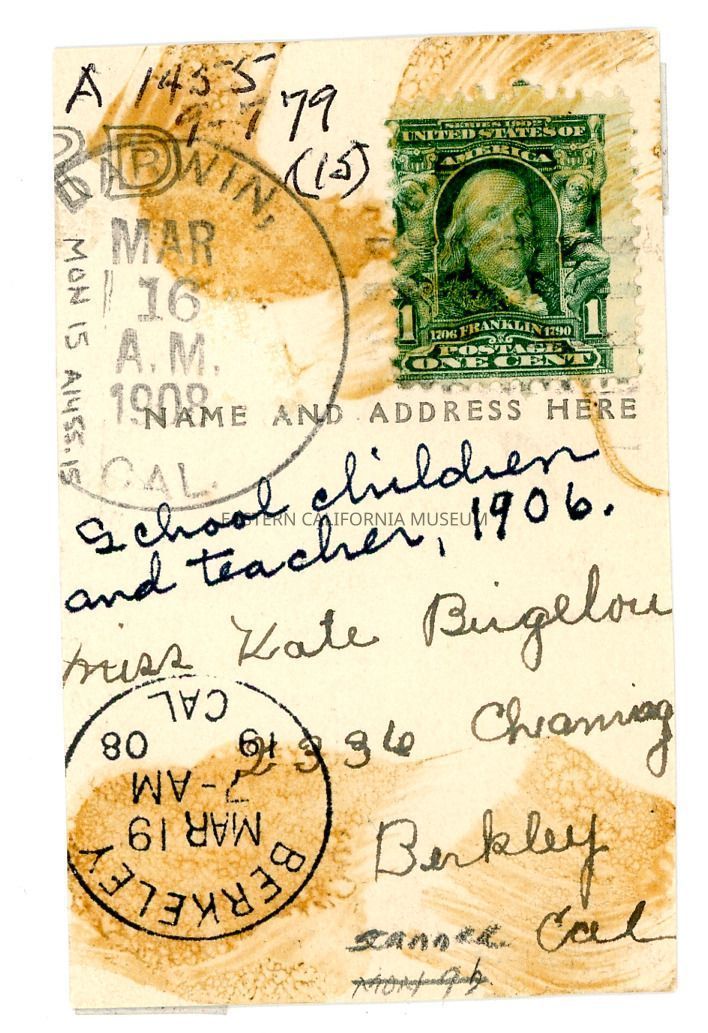 A 1455
9-7 79
(15)
SERIES 1902
UNITED STATES OF
AMERICA
1706 FRANKLIN 1790
1 1
POSTAGE
ONE CENT
RWIN,
MAR
16
A.M.
1908
CAL.
NAME AND ADDRESS HERE
School children
EASTERN CALIFORNIA MUSEUM
and teacher, 1906.
Miss Kate Bigelow
2336 Channing
Berkley
Cal
BERKELEY
MAR 19
7-AM
19 08
CAL